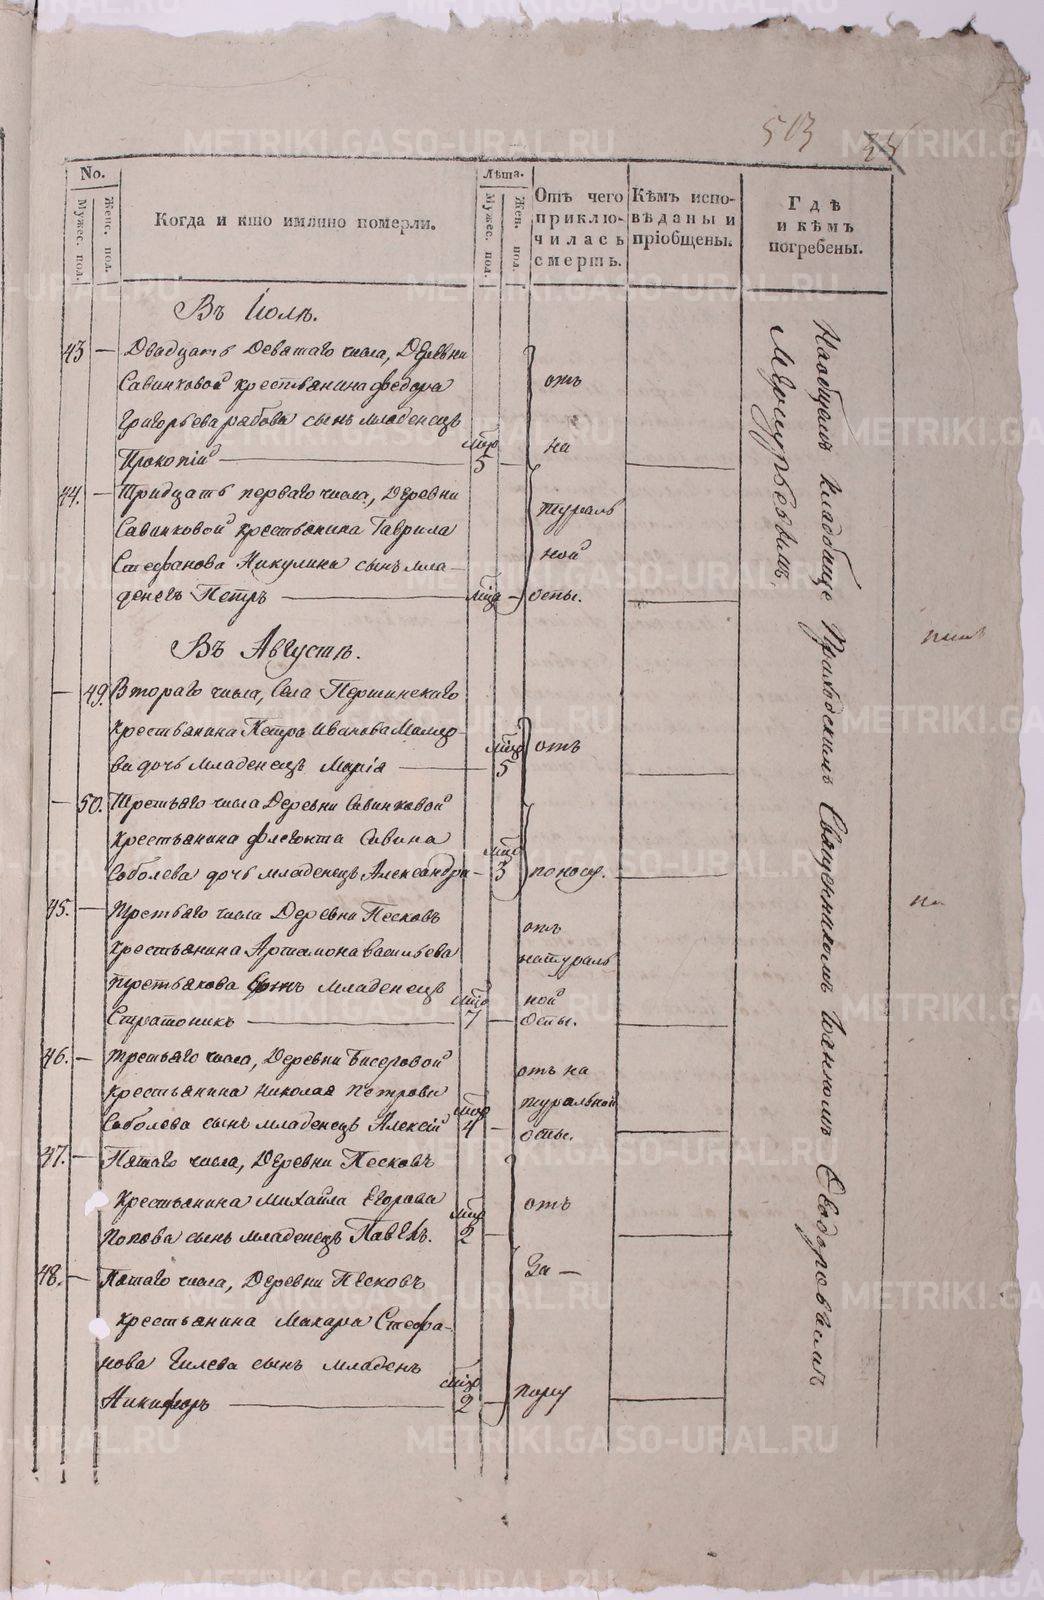 503
25
No.
Мужес. пол.
Женс. пол.
Когда и кто имянно померли.
Лѣта.
Мужес. пол.
Жен. пол.
Отъ чего
приклю-
чилась
смерть.
Кѣмъ испо-
вѣданы и
пріобщены.
Гдѣ
и кѣмъ
погребены.
Въ Іюлѣ.
43 — Двадцать Девятаго числа, Деревни
Савинковой крестьянина Федора
Григорьева рабова сынъ младенецъ
Прокопій — 5 —
отъ
на
44. — Тридцать перваго числа, Деревни
Савинковой крестьянина Гаврила
Стефанова Никулина сынъ мла-
денецъ Петръ —
тураль
ной
оспы.
Въ Августѣ.
— 49. Втораго числа, Села Першинскаго
крестьянина Петра Иванова
ва дочь младенецъ Марія — 5
отъ
— 50. Третьяго числа Деревни Савинковой
крестьянина Флегонта Савина
Соболева дочь младенецъ Александра — 3
поносу.
45. — Третьяго числа Деревни Песковъ
крестьянина Артамона Васильева
третьякова сынъ младенецъ
Стратоникъ — 7 —
отъ
натураль
ной
оспы.
46. — третьяго числа, Деревни Бисеровой
крестьянина Николая Петрова
Соболева сынъ младенецъ Алексій 4 —
отъ на
туральной
оспы.
47. — Пятаго числа, Деревни Песковъ
крестьянина Михайла Егорова
Попова сынъ младенецъ Павелъ. 2 —
отъ
48. — Пятаго числа, Деревни Песковъ
крестьянина Макара Стефа-
нова Гилева сынъ младенъ
Никифоръ — 2 —
За —
пору
На общемъ кладбище Приходскимъ Священникомъ Іоанномъ Еводоровымъ
METRIKI.GASO-URAL.RU